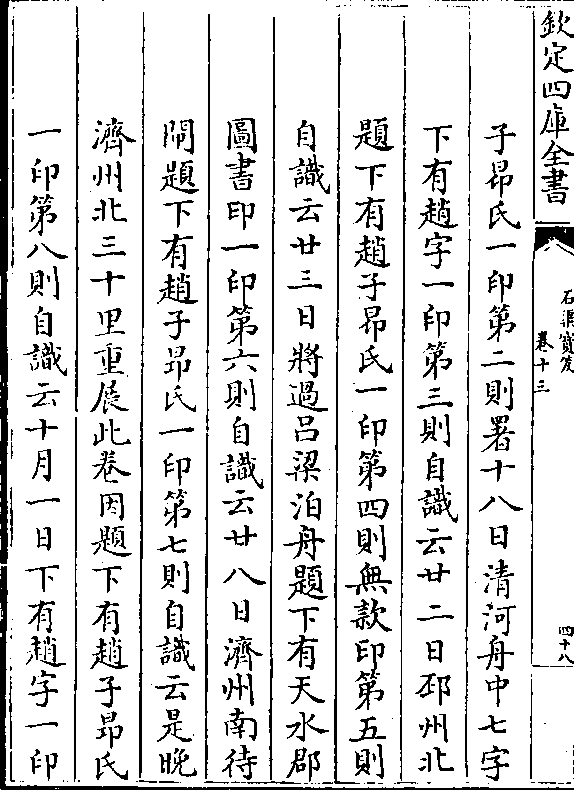 欽定四庫全書
石渠寳笈
卷十三
四十八
子昻氏一印第二則署十八日清河舟中七字
下有趙字一印第三則自識云廿二日邳州北
題下有趙子昻氏一印第四則無款印第五則
自識云廿三日將過吕梁泊舟題下有天水郡
圖書印一印第六則自識云廿八日濟州南待
閘題下有趙子昻氏一印第七則自識云是晚
濟州北三十里重展此卷因題下有趙子昻氏
一印第八則自識云十月一日下有趙字一印